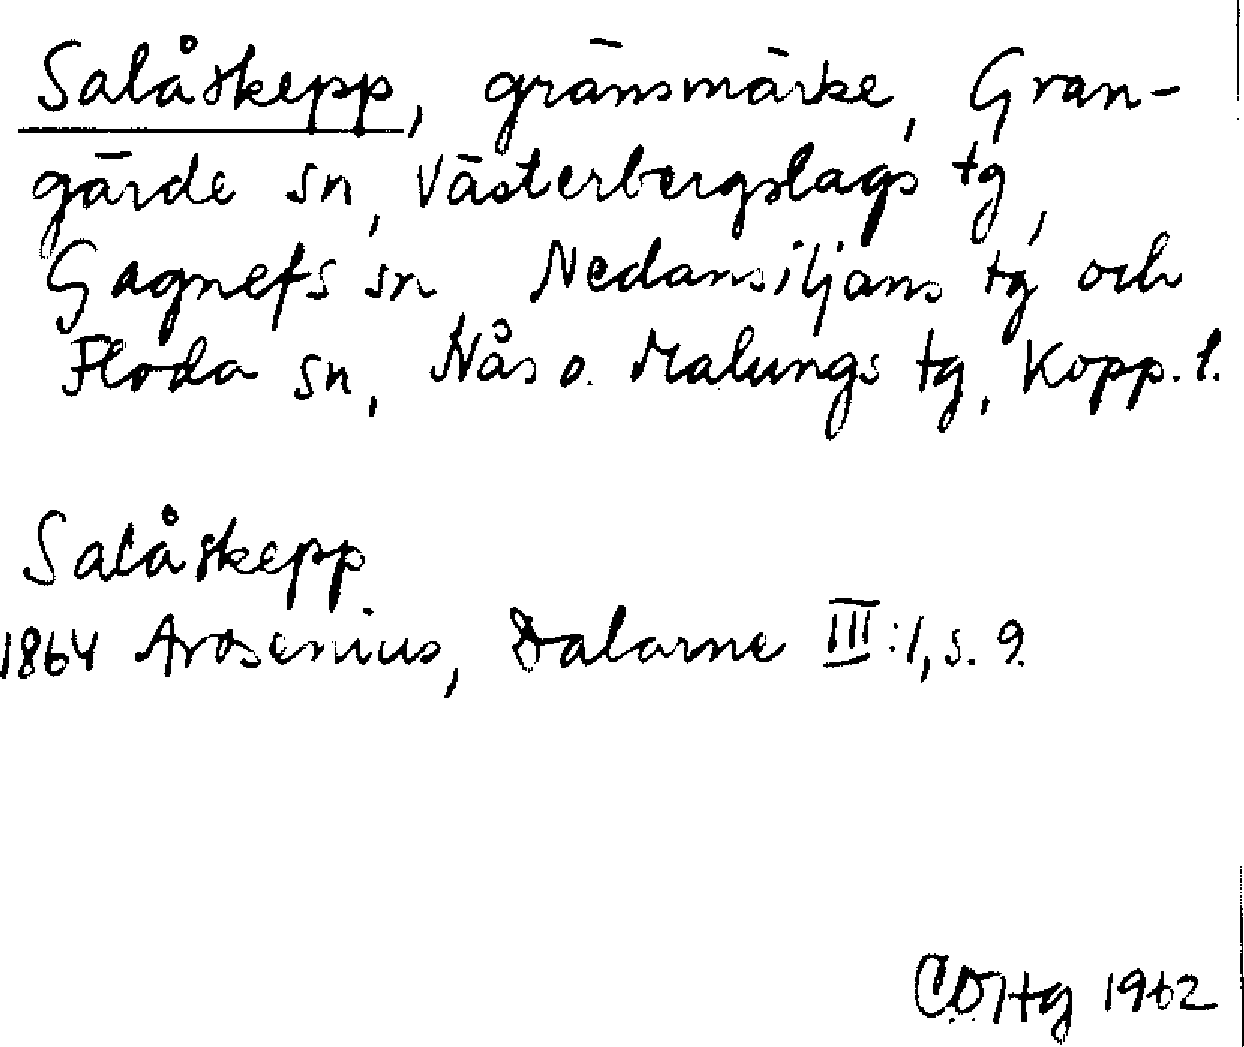 Salåskepp, gränsmärke, Gran-
gärde sn, Västerbergslags tg,
Gagnefs sn Nedansiljans tg och
Floda sn, Nås o. Malungs tg, Kopp. l.
Salåskepp
1864 Arosenius, Dalarne III:1, s. 9.
1962